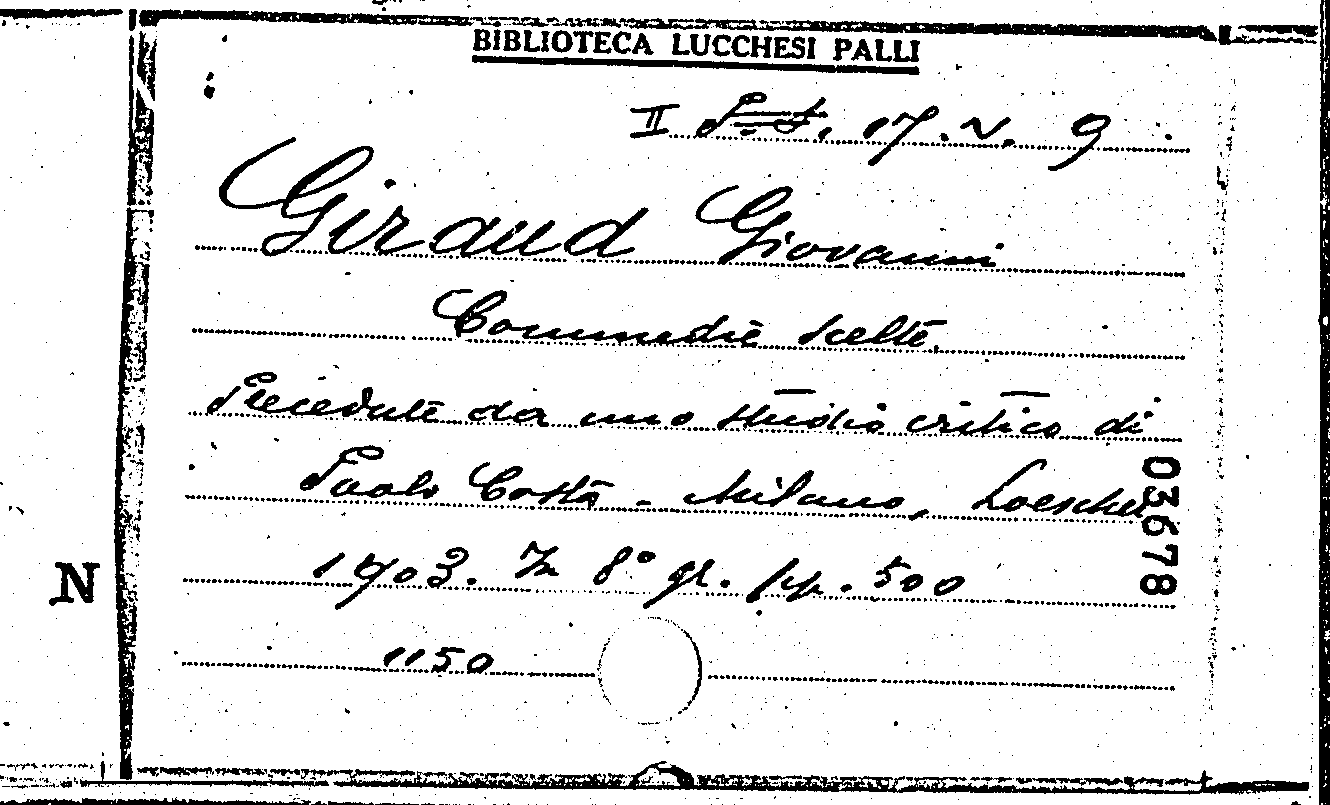 BIBLIOTECA LUCCHESI PALLI
II 17. V. 9
Giraud Giovanni
Commedie scelte.
Precedute da uno studio critico di
Paolo Costa - Milano, Loescher
1903. In 8° gr. pp. 500
1150
03678
N